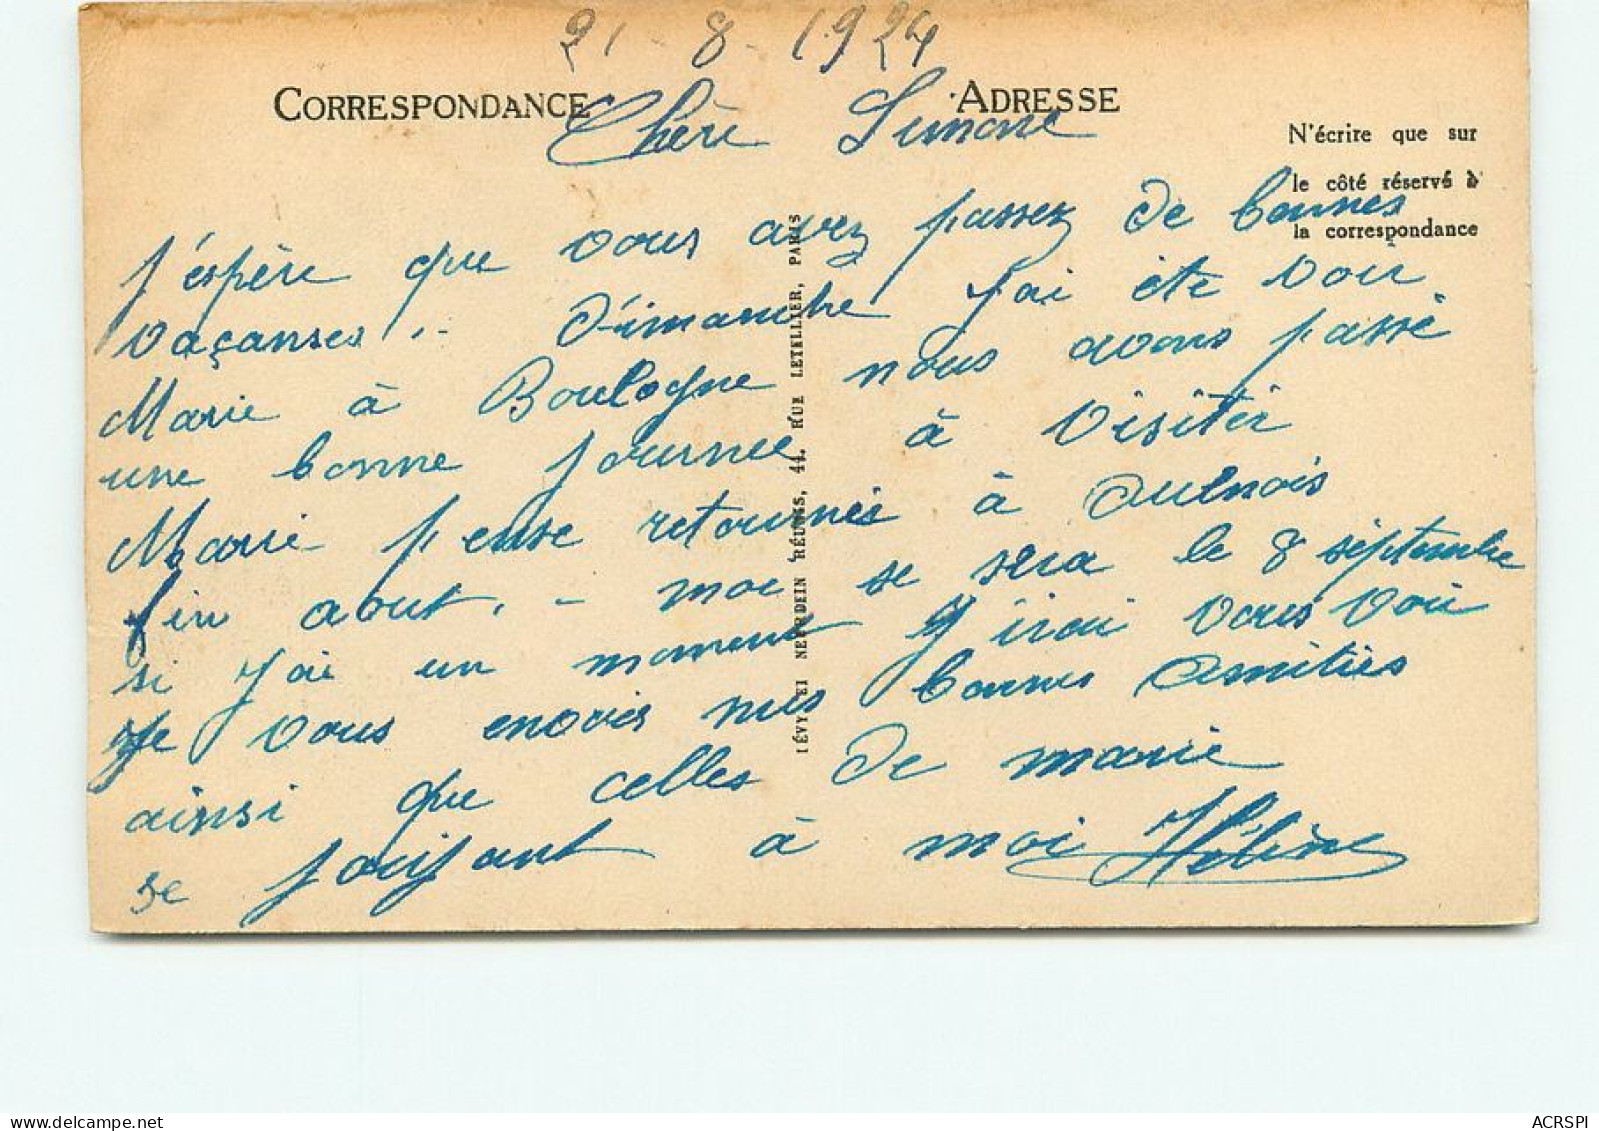 21-8-1924
CORRESPONDANCE
ADRESSE
N'écrire que sur
le côté réservé à
la correspondance
Chère Simone
J'espère que vous avez passez de bonnes
vaçanses.- Dimanche j'ai été voir
Marie à Boulogne nous avons passé
une bonne journée à visiter
Marie pense retournér à Aulnois
fin aout.- moi se sera le 8 séptembre
si j'ai un moment j'irai vous voir
Je vous envoies mes bonnes amitiés
ainsi que celles de marie
se joignant à moi Hélène
LÉVY ET NEURDEIN RÉUNIS, 44, RUE LETELLIER, PARIS
ACRSPI